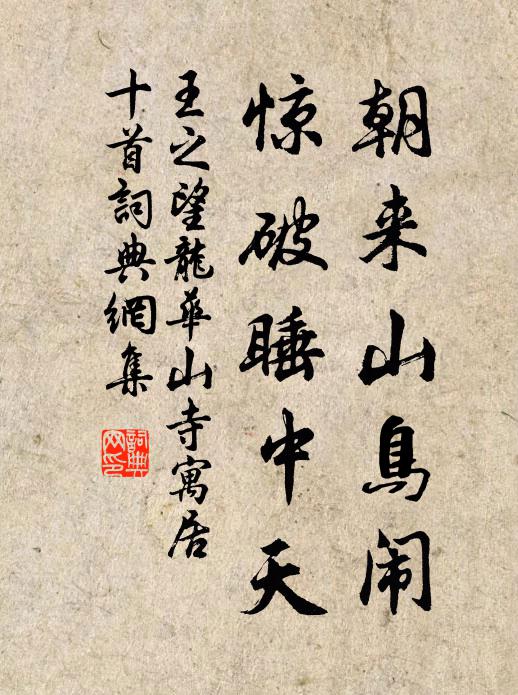 朝来山鳥闹
惊破睡中天
王之望龍華山寺寓居
十首詞典網集
詞典
网印